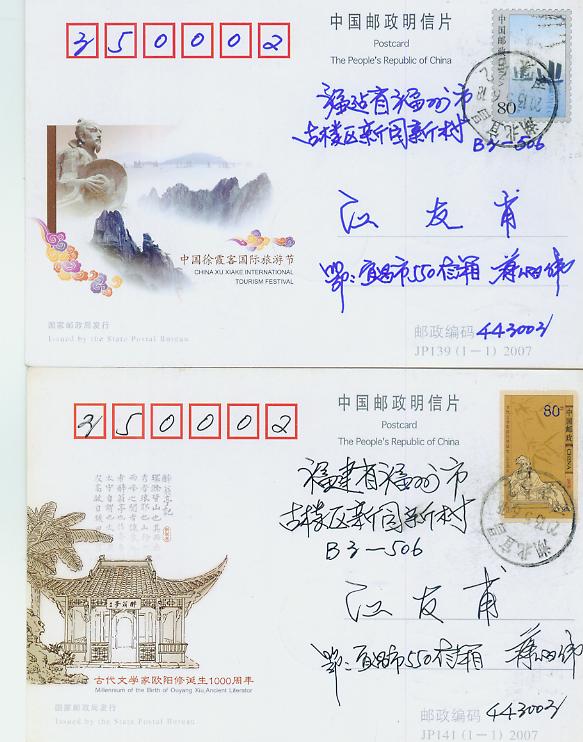 350002
中国邮政明信片
Postcard
The People's Republic of China
80
福建省福州市
古楼区新园新村
B3-506
江友甫
中国徐霞客国际旅游节
CHINA XU XIAKE INTERNATIONAL
TOURISM FESTIVAL
鄂:宜昌市550信箱
国家邮政局发行
Issued by the State Postal Bureau
邮政编码 443003
JP139 (1-1) 2007
350002
中国邮政明信片
Postcard
The People's Republic of China
80
福建省福州市
古楼区新园新村
B3-506
醉翁亭记
江友甫
鄂:宜昌市550信箱
古代文学家欧阳修诞生1000周年
Millennium of the Birth of Ouyang Xiu,Ancient Literator
国家邮政局发行
Issued by the State Postal Bureau
邮政编码 443003
JP141 (1-1) 2007